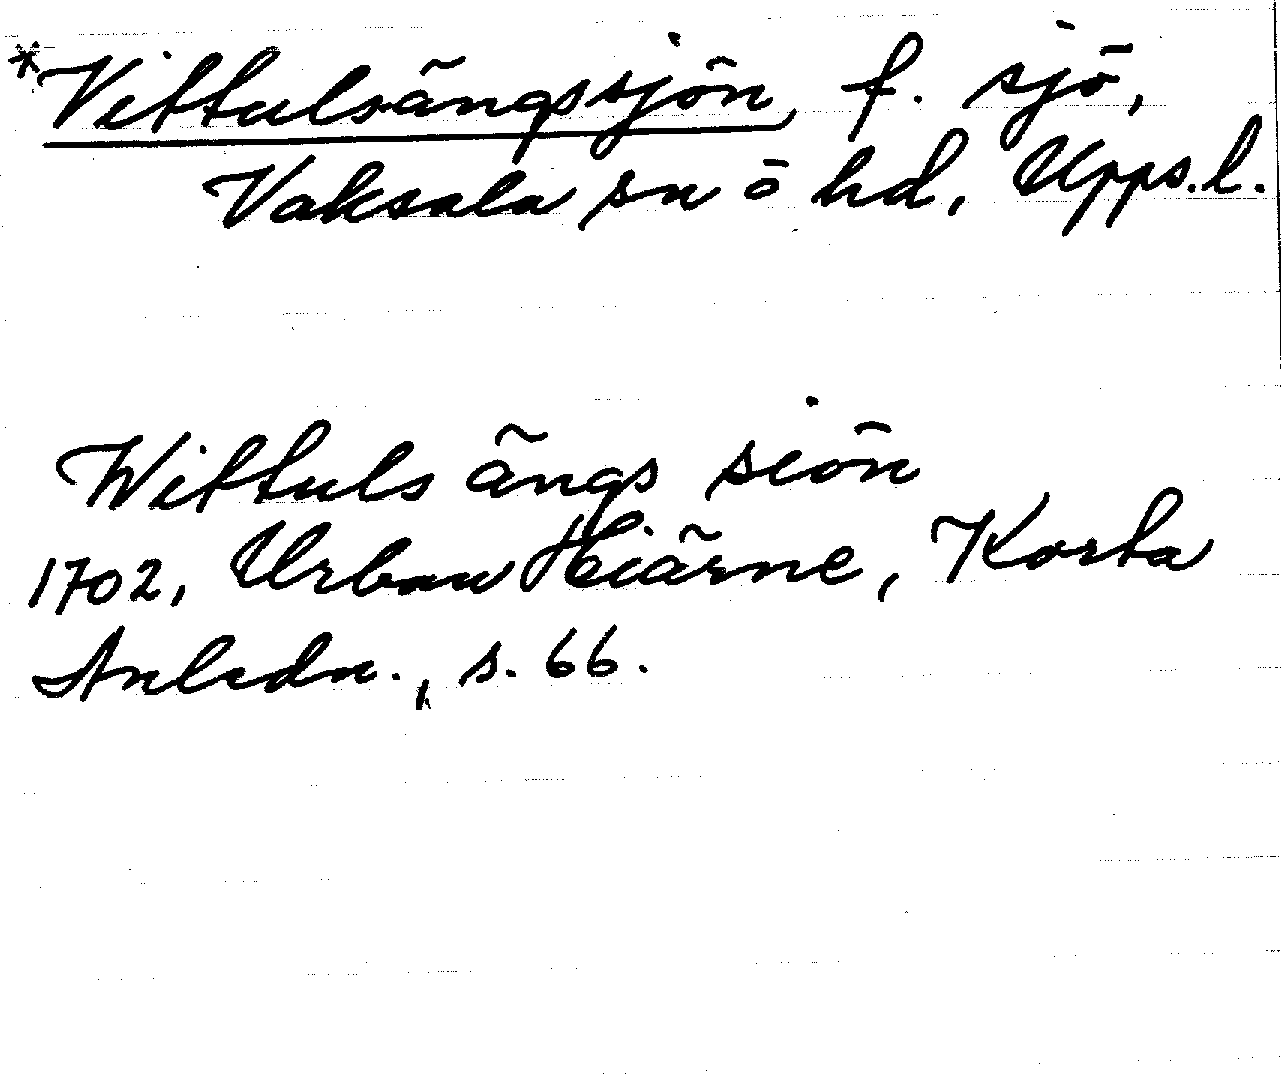 *Vittulsängssjön, f. sjö,
Vaksala sn o hd, Upps. l.
Wittuls ängs siön
1702, Urban Hiärne, Korta
Anledn., s. 66.